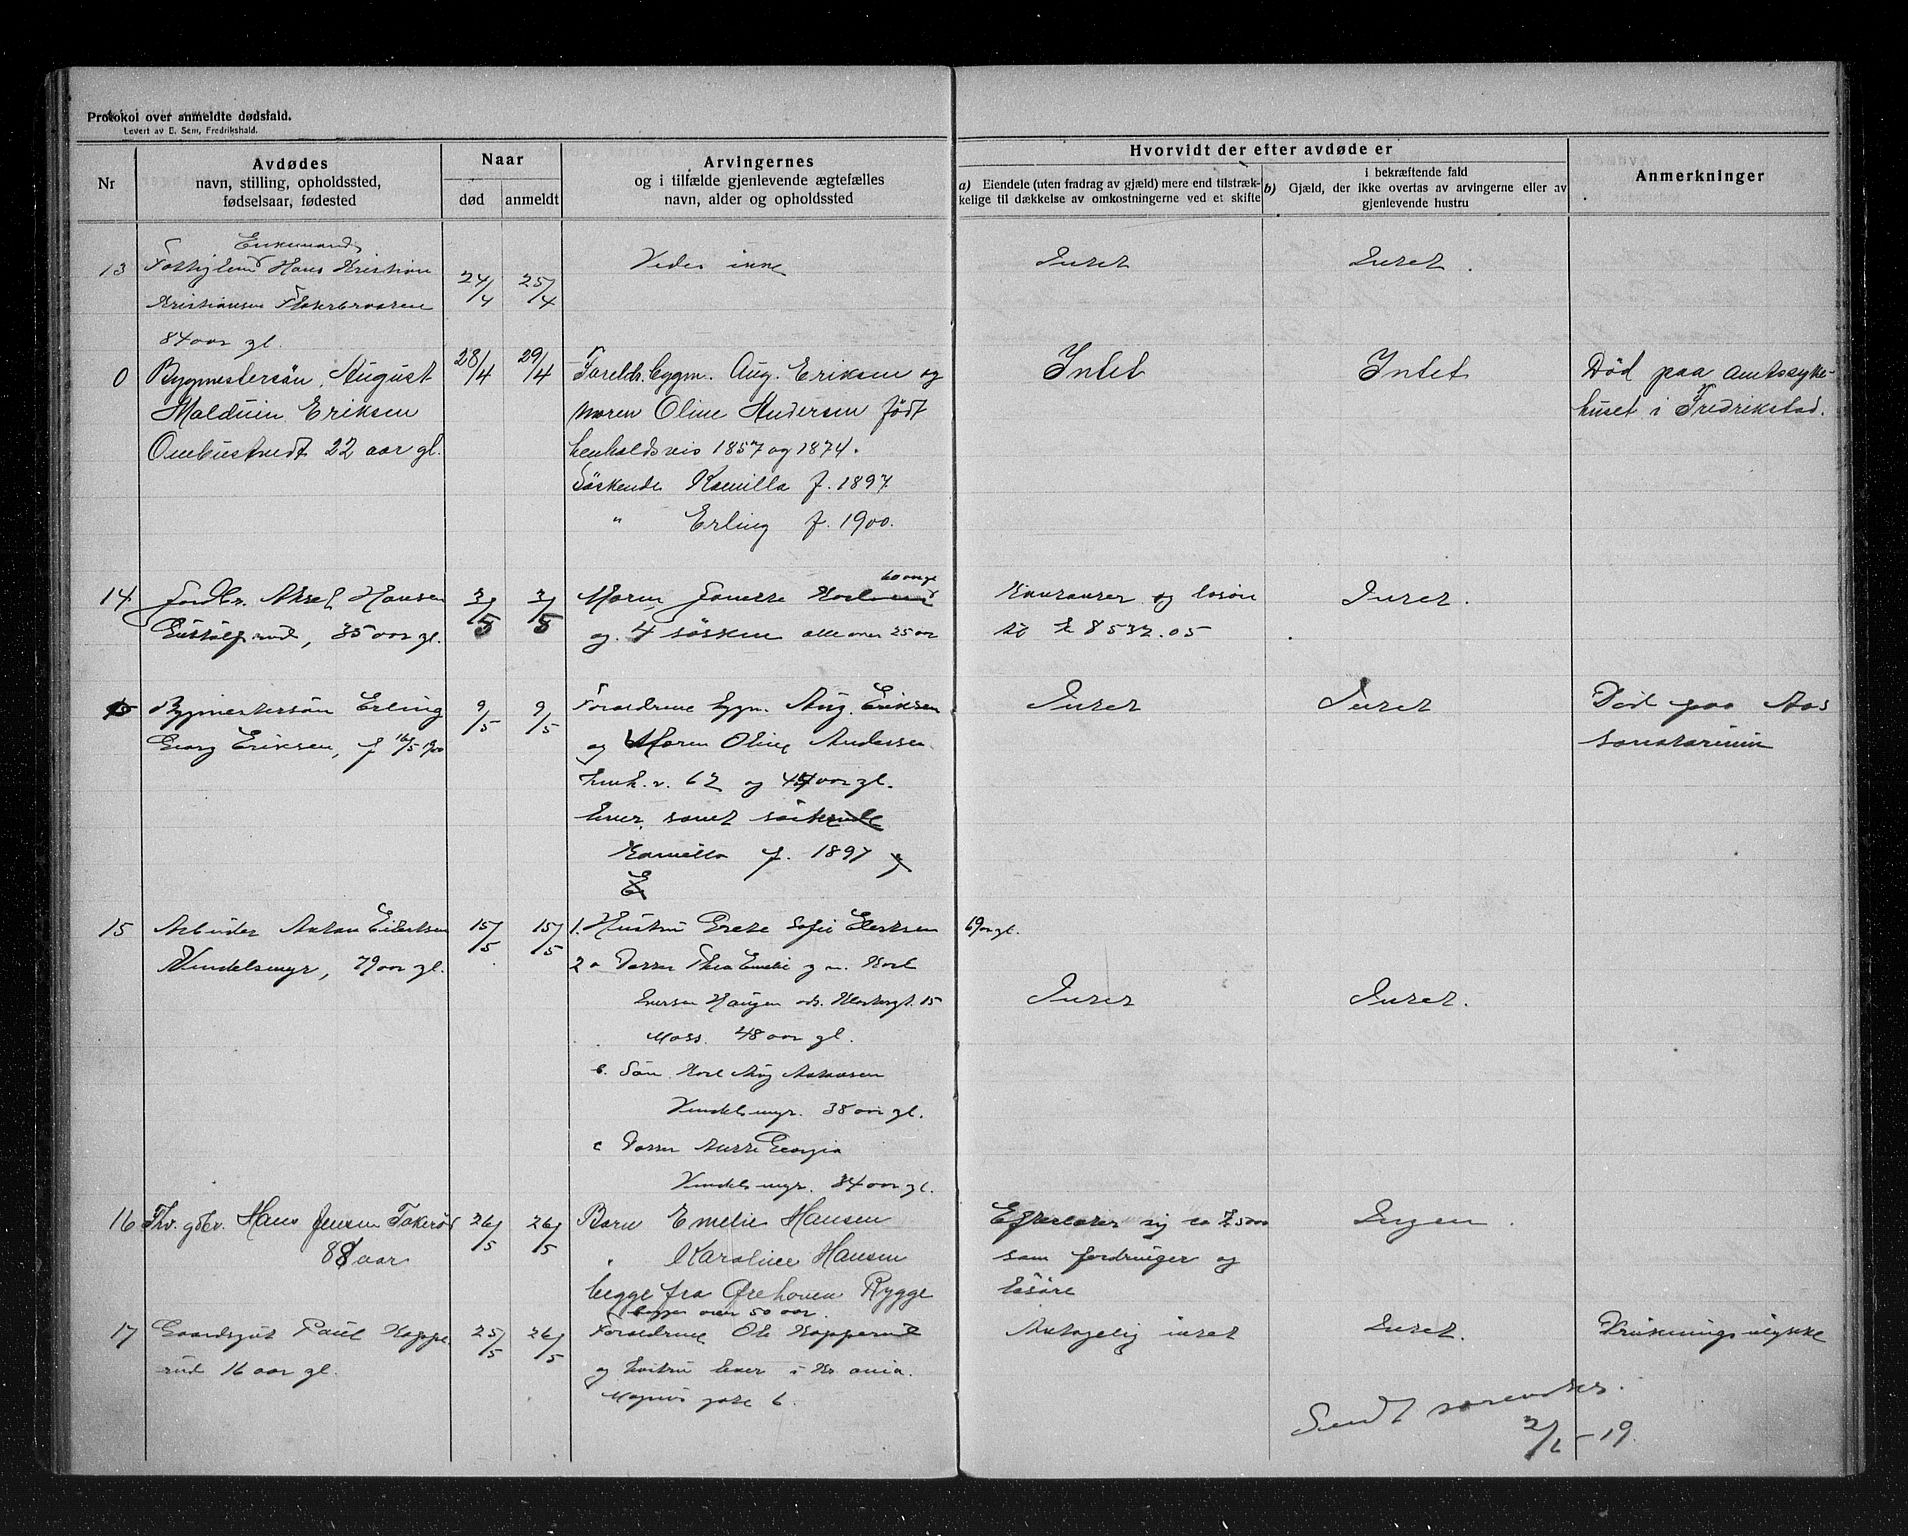 Protokol over anmeldte dødsfald.
Levert av E. Sem, Fredrikshald.
Nr
Avdødes
navn, stilling, opholdssted,
fødselsaar, fødested
Naar
død
anmeldt
Arvingernes
og i tilfælde gjenlevende ægtefælles
navn, alder og opholdssted
Hvorvidt der efter avdøde er
a) Eiendele (uten fradrag av gjæld) mere end tilstræk-
kelige til dækkelse av omkostningerne ved et skifte
i bekræftende fald
b) Gjæld, der ikke overtas av arvingerne eller av
gjenlevende hustru
Anmerkninger
Enkemand
13 Hans Kristian 24/4 25/4 Vides ikke Intet Intet.
Kristiansen
84 aar gl.
0 Bygmestersön August 28/4 29/4 Foreldr. bygm. Aug. Eriksen og Intet Intet Død paa amtssyke-
Malduin Eriksen moren Oline Andersen født huset i Fredrikstad.
22 aar gl. henholdsvis 1857 og 1874.
Söskende Kamilla f. 1897
" Erling f. 1900.
60 aar gl
14 Jordbr. Aksel Hansen 3/5 3/5 Moren Intet.
35 aar gl. og 4 søsken alle over 25 aar kr 8532.05
15 Bygmestersön Erling 9/5 9/5 Forældrene bygm. Aug. Eriksen Intet Intet Död paa Aas
Georg Eriksen, f 16/5 1900 og Moren Oline Andersen sanatorium
henh. v. 62 og 44 aar gl.
lever, samt söskende
Kamilla f. 1897 og
E
15 Arbeider Anton Eilertsen 15/5 15/5 1. Hustru Grete Sofie Eilertsen 69 aar gl.
Vindelsmyr, 79 aar gl. 2 a Datter Thea Emelie g. m. Karl
Iversen Haugen Klostergt. 15 Intet Intet.
Moss. 48 aar gl.
b. Sön Karl Aug Antonsen
Vindelsmyr. 38 aar gl.
c Datter Georgia
Vindelsmyr. 34 aar gl.
16 Fhv. gdbr. Hans Jensen Takerød 26/5 26/5 Barn Emelie Hansen Efterlater sig ca Ingen.
88 aar " Karoline Hansen som fordringer og
begge fra Ørehaven Rygge løsøre
begge over 50 aar.
17 Gaardsgut Paul Koppe 25/5 26/5 Forældrene Ole Kopperud Antagelig intet Intet. Drukningsulykke
rud 16 aar gl. og hustru lever i Kr.ania.
Magnus gate 6.
Sendt
2/6-19.